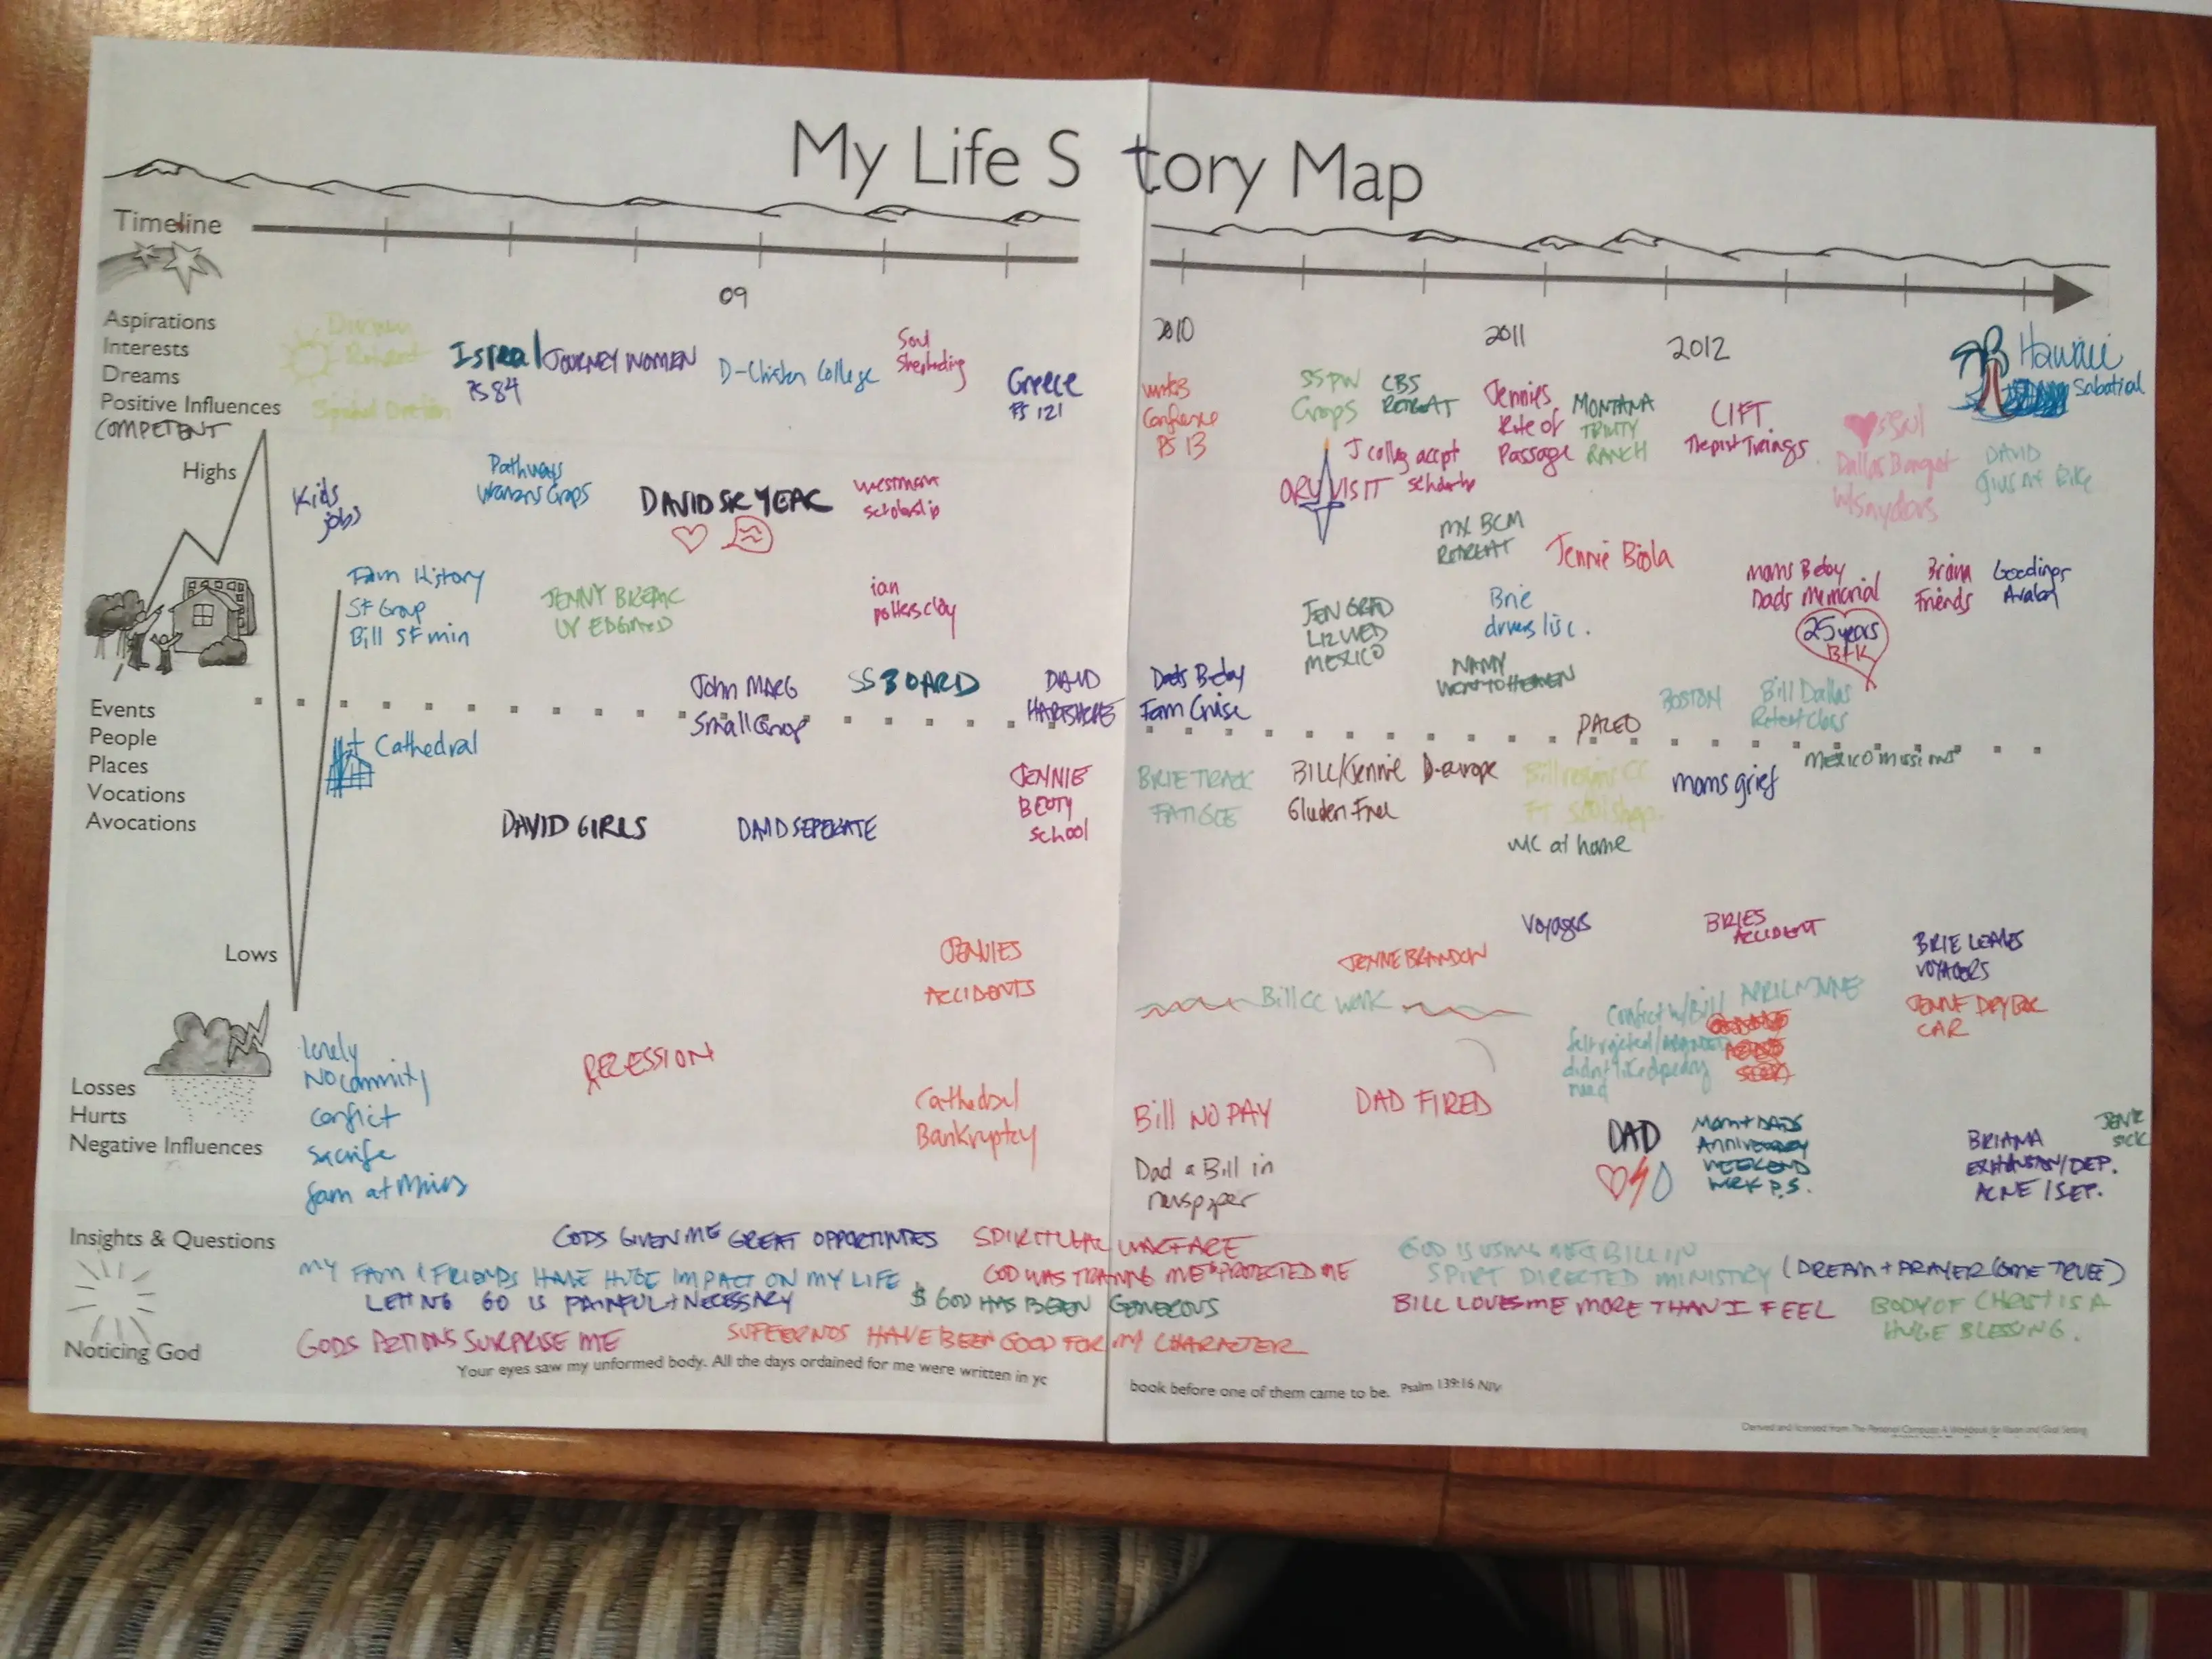 My Life Story Map
Timeline
09
2010
2011
2012
Aspirations
Interests
Dreams
Positive Influences
COMPETENT
Highs
Isreal
PS 84
JOURNEY WOMEN
D-Christen College
Soul
Shepherding
Greece
PS 121
PS 13
Groups
CBS
RETREAT
Jennies
Rite of
Passage
MONTANA
TRINITY
RANCH
LIFT
Hawaii
Sabatial
Kids
jobs
Pathways
Womens Groups
DAVID SR YEAR
westmont
scholarship
J colleg accpt
Dallas Banquet
w/Snyders
DAVID
MX BCM
RETREAT
Jennie Biola
Fam History
SF Group
Bill SF min
JENNY BREAK
ian
potters clay
JEN GRAD
LIZ WED
MEXICO
Brie
drivers lisc.
Moms Bday
Dads Memorial
25 years
B+K
Briana
Friends
Goodings
Avalon
John MARG
Small Group
SS BOARD
DAVID
HARTSHORE
Dads Bday
Fam Cruise
NANY
WENT TO HEAVEN
BOSTON
Bill Dallas
Retreat Class
PALEO
Events
People
Places
Vocations
Avocations
Cathedral
DAVID GIRLS
DAVID SEPERATE
JENNIE
BEOTY
School
BRIE TRACK
FATIGUE
BILL/Jennie D-europe
Gluden Free
WC at home
moms grief
mexico missions
Lows
JENNIES
ACCIDENTS
JENNIE BRANDON
Bill CC work
Voyages
BRIES
ACCIDENT
BRIE LEAVES
VOYAGERS
CAR
Losses
Hurts
Negative Influences
lonely
NO commity
conflict
sacrife
RECESSION
Cathedral
Bankruptcy
Bill NO PAY
Dad & Bill in
newspaper
DAD FIRED
Conflict w/Bill
DAD
MOM + DADS
ANNIVERSARY
WEEKEND
BRIANA
EXHAUSTION/DEP.
ACNE / SEP.
JENR
SICK
Insights & Questions
GODS GIVEN ME GREAT OPPORTUNITIES
SPIRITUAL WARFARE
GOD IS USING ME & BILL IN
SPIRT DIRECTED MINISTRY (DREAM + PRAYER COME TRUE)
MY FAM & FRIENDS HAVE HUGE IMPACT ON MY LIFE
GOD WAS TRAINING ME & PROTECTED ME
LETTING GO IS PAINFUL + NECESSARY
$ GOD HAS BEEN GENEROUS
BILL LOVES ME MORE THAN I FEEL
BODY OF CHRIST IS A
HUGE BLESSING.
GODS ACTIONS SURPRISE ME
SUFFERINGS HAVE BEEN GOOD FOR MY CHARACTER
Noticing God
Your eyes saw my unformed body. All the days ordained for me were written in yo
book before one of them came to be. Psalm 139:16 NIV